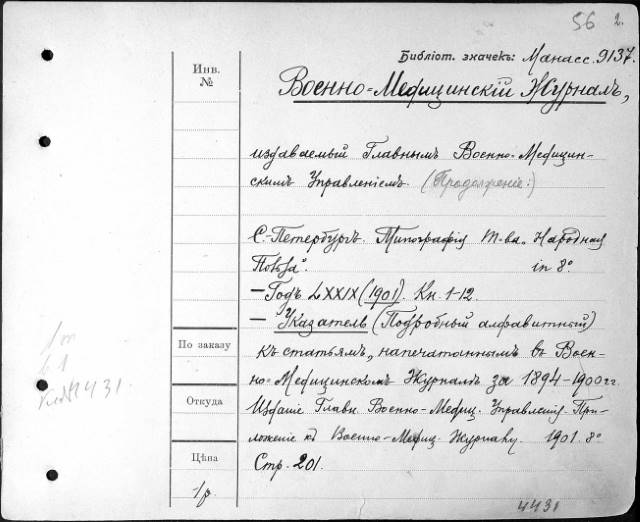 56 2.
Библіот. значекъ: Манасс. 9137.
Инв.
№
Военно-Медицинскій Журналъ,
издаваемый Главнымъ Военно-Медицин-
скимъ Управленіемъ. (Продолженіе:)
С.-Петербургъ. Типографія Т-ва „Народная
Польза". in 8°.
— Годъ LXXIX (1901). Кн. 1-12.
— Указатель (Подробный алфавитный)
По заказу
къ статьямъ, напечатаннымъ въ Воен-
но-Медицинскомъ Журналѣ за 1894-1900 гг.
Откуда
Изданіе Главн. Военно-Медиц. Управленія. При-
ложеніе къ Военно-Медиц. Журналу. 1901. 8°
Цѣна
Стр. 201.
4431